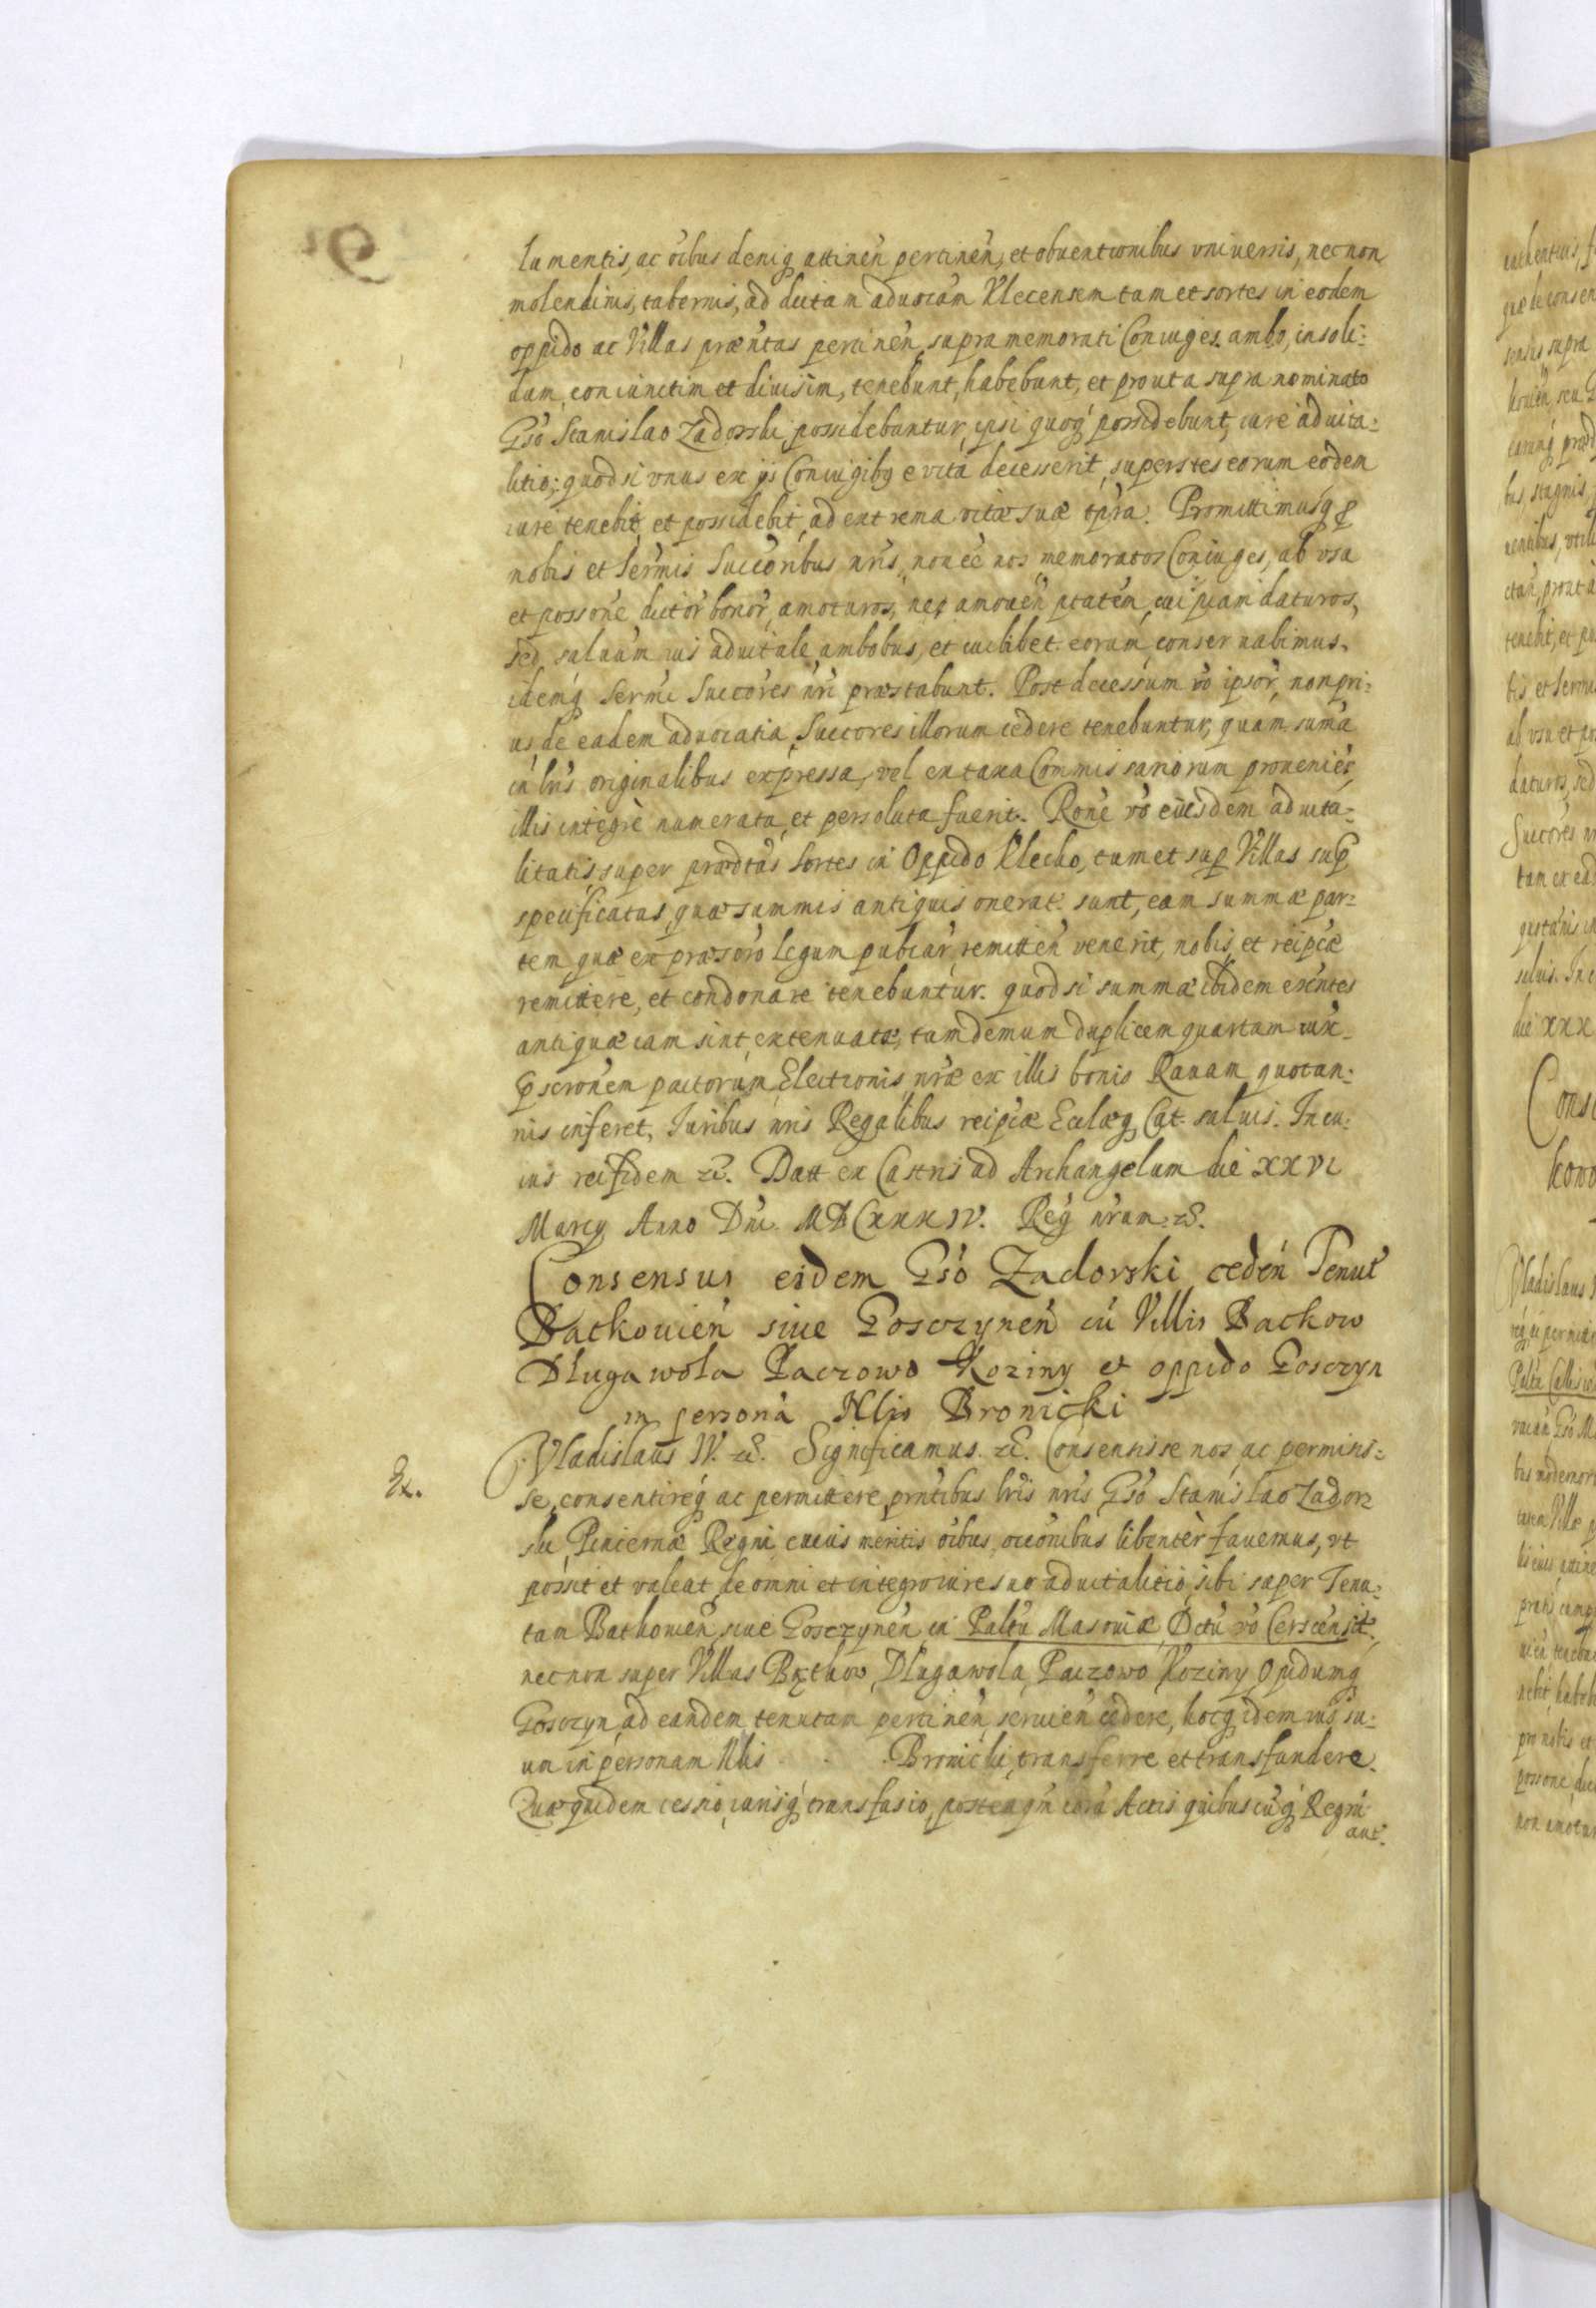 lumentis, ac oībus deniq̃ attineñ pertineñ, et obuentionibus vniuersis, necnon
molendinis, tabernis, ad dictam aduocãm Klecensem tam et sortes in eodem
oppido ac Villas præntas pertineñ, supra memorati Coniuges ambo, in soli:
dum, coniunctim et diuisim, tenebunt, habebunt, et prout a supra nominato
Gso Stanislao Zadorski possidebantur, ipsi quoq̃ possidebunt, iure aduita:
litio; quod si vnus ex ijs Coniugibq e vita decesserit, superstes eorum eodem
iure tenebit et possidebit ad extrema vitæ suæ tp̃ra. Promittimusq̃ p
nobis et Ser̃mis Succoribus nr̃is, non eẽ nos memoratos Coniuges, ab vsu
et possone dictor̃ bonor̃ amoturos, neq amoueñ ptatem cuipiam daturos,
sed saluum ius aduitale ambobus, et cuilibet eorum conseruabimus,
idemq̃ Sermi Succores nr̃i præstabunt. Post decessum vo ipsor̃, non pri:
us de eadem aduocatia Succores illorum cedere tenebuntur, quam suma
in lris originalibus expressa, vel ex taxa Commissariorum proueniẽs,
illis integrè numerata et persoluta fuerit. Rone vo eiusdem aduita:
litatis super prædtas sortes in Oppido Klecko, tum et sup Villas sup
specificatas, quæ summis antiquis onerat. sunt, eam summæ par:
tem quæ ex præscro legum publcar̃ remitteñ venerit, nobis et reipcæ
remittere, et condonare tenebuntur. quod si summæ ibidem exntes
antiquæ iam sint extenuatæ, tum demum duplicem quartam iux
p̃scronem pactorum Electionis nr̃æ ex illis bonis Rauam quotan:
nis inferet, Iuribus nris Regalibus reipcæ Ecclæq Cat. saluis. In cu:
ius rei fidem &c. Datt ex Castris ad Archangelum die XXVI
Marcij Anno Dni MDCXXXIV. Reg nrum. &c.
Consensus eidem Gso Zadorski cedeñ Tenut
Batkouień siue Gosczyneń cũ Villis Backow
Długawola Paczowo Koziny et oppido Gosczyn
in personã Nlis Bronicki
Ex. Vladislaus IV. &c. Significamus. &c. Consensisse nos ac permisis:
se, consentireq̃ ac permittere prntibus lris nris Gso Stanislao Zadors
ski Pincernæ Regni cuius meritis oibus occonibus libentèr fauemus, vt
possit et valeat de omni et integro iure suo aduitalitio, sibi super Tenu:
tam Batkouień siue Gosczyneń in Paltu Masouiæ Dctu vo Cerscensi
necnon super Villas Bętkow, Długawola, Paczowo Koziny Opidumq̃
Gosczyn ad eandem tenutam pertineñ, seruień cedere, hocq̃ idem ius su:
um in personam Nlis . . Bronicki transferre et transfundere.
Quæquidem cessio, iurisq̃ transfusio, posteaqm corã Actis quibuscũq̃ Regni
aut.